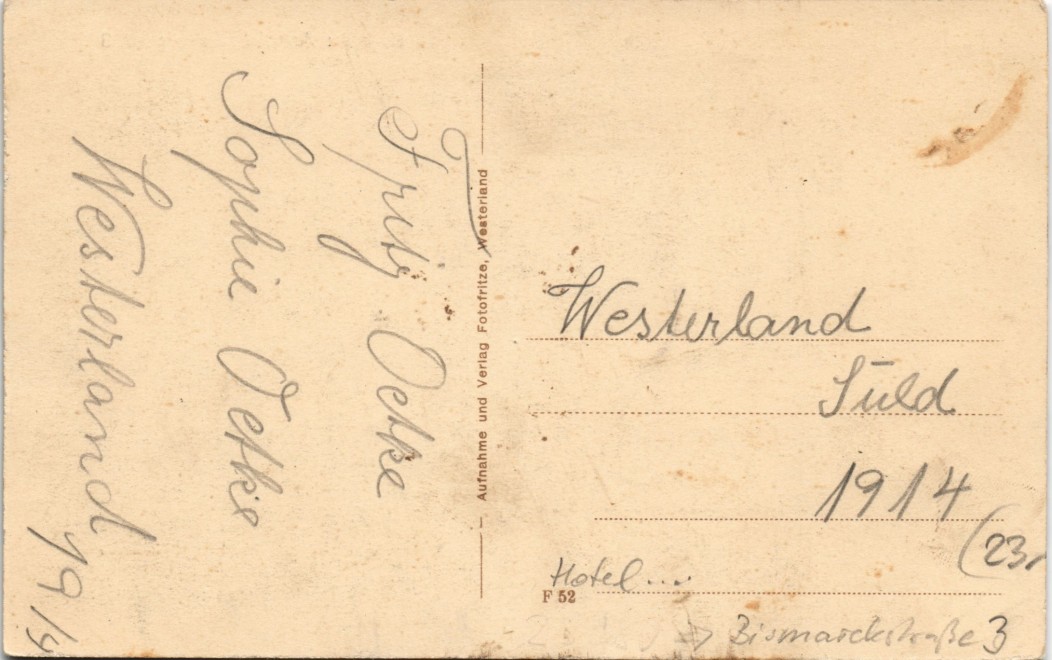 Fritz Oetke
Sophie Oetke
Westerland
19/4
Aufnahme und Verlag Fotofritze, Westerland
Westerland
Süld
1914
(23,
Hotel....
F 52
Bismarckstraße 3